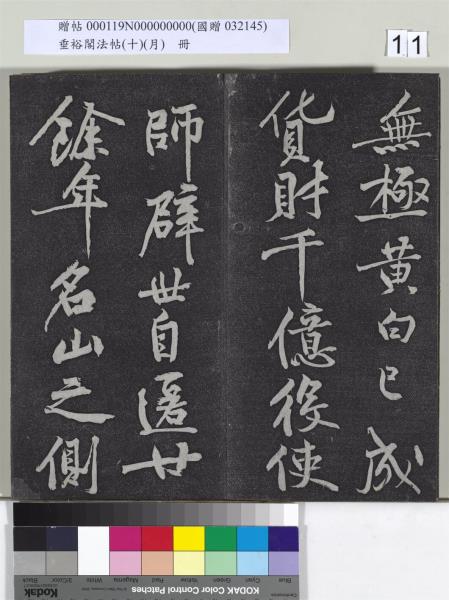 贈帖 000119N000000000(國贈 032145)
垂裕閣法帖(十)(月) 冊
11
無極黃白已成
貨財千億役使
師辟世自遁廿
餘年名山之側
Blue
Cyan
Green
Yellow
Red
Magenta
White
3/Color
Black
KODAK Color Control Patches